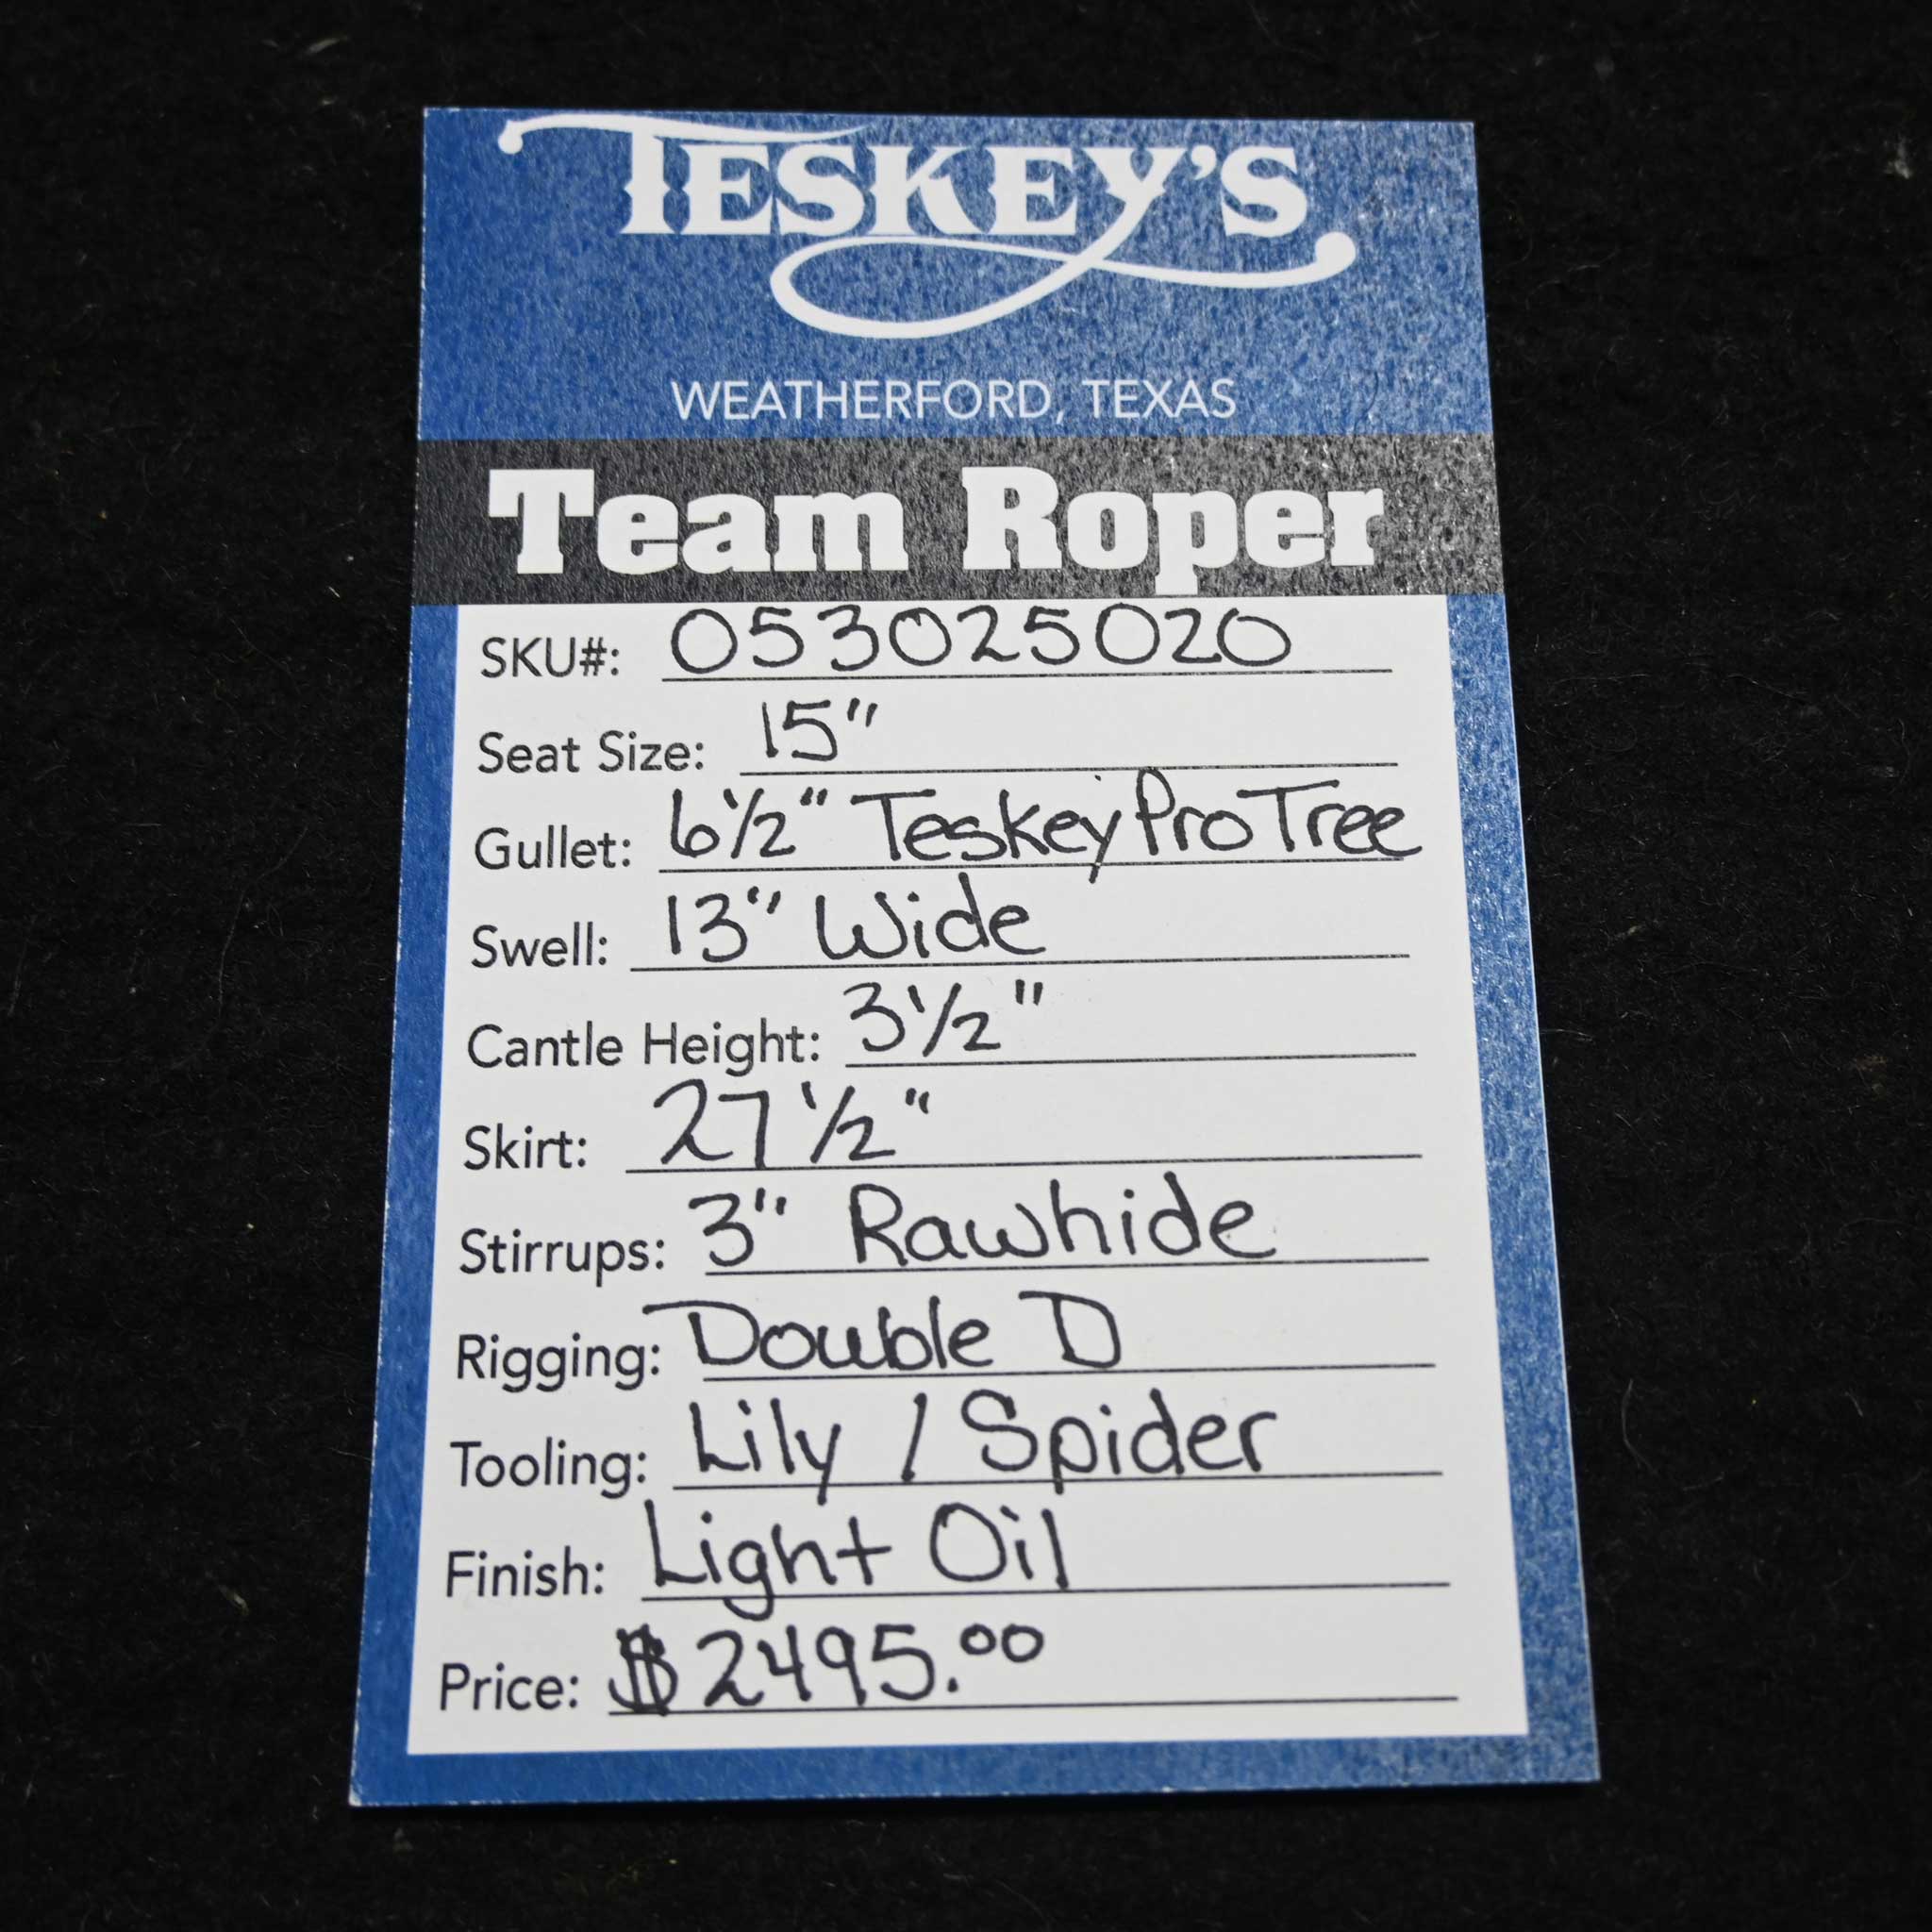 TESKEY'S
WEATHERFORD, TEXAS
Team Roper
SKU#: 053025020
Seat Size: 15"
Gullet: 6 1/2" Teskey Pro Tree
Swell: 13" Wide
Cantle Height: 3 1/2"
Skirt: 27 1/2"
Stirrups: 3" Rawhide
Rigging: Double D
Tooling: Lily / Spider
Finish: Light Oil
Price: $2495.00